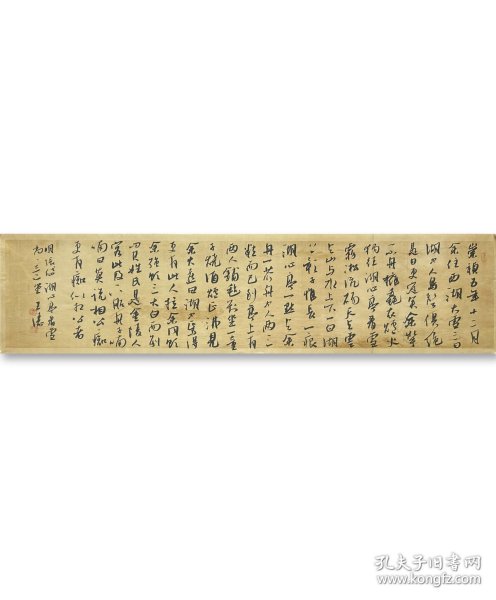 崇禎五年十二月
余住西湖大雪三日
湖中人鳥聲俱絕
是日更定矣余拏
一小舟擁毳衣爐火
獨往湖心亭看雪
霧凇沆碭天與雲
與山與水上下一白湖
上影子惟長堤一痕
湖心亭一點與余
舟一芥舟中人兩三
粒而已到亭上有
兩人鋪氈對坐一童
子燒酒爐正沸見
余大喜曰湖中焉得
更有此人拉余同飲
余強飲三大白而別
問其姓氏是金陵人
客此及下船舟子喃
喃曰莫說相公癡
更有癡似相公者
明張岱湖心亭看雪
孔夫子旧书网
www.kongfz.com